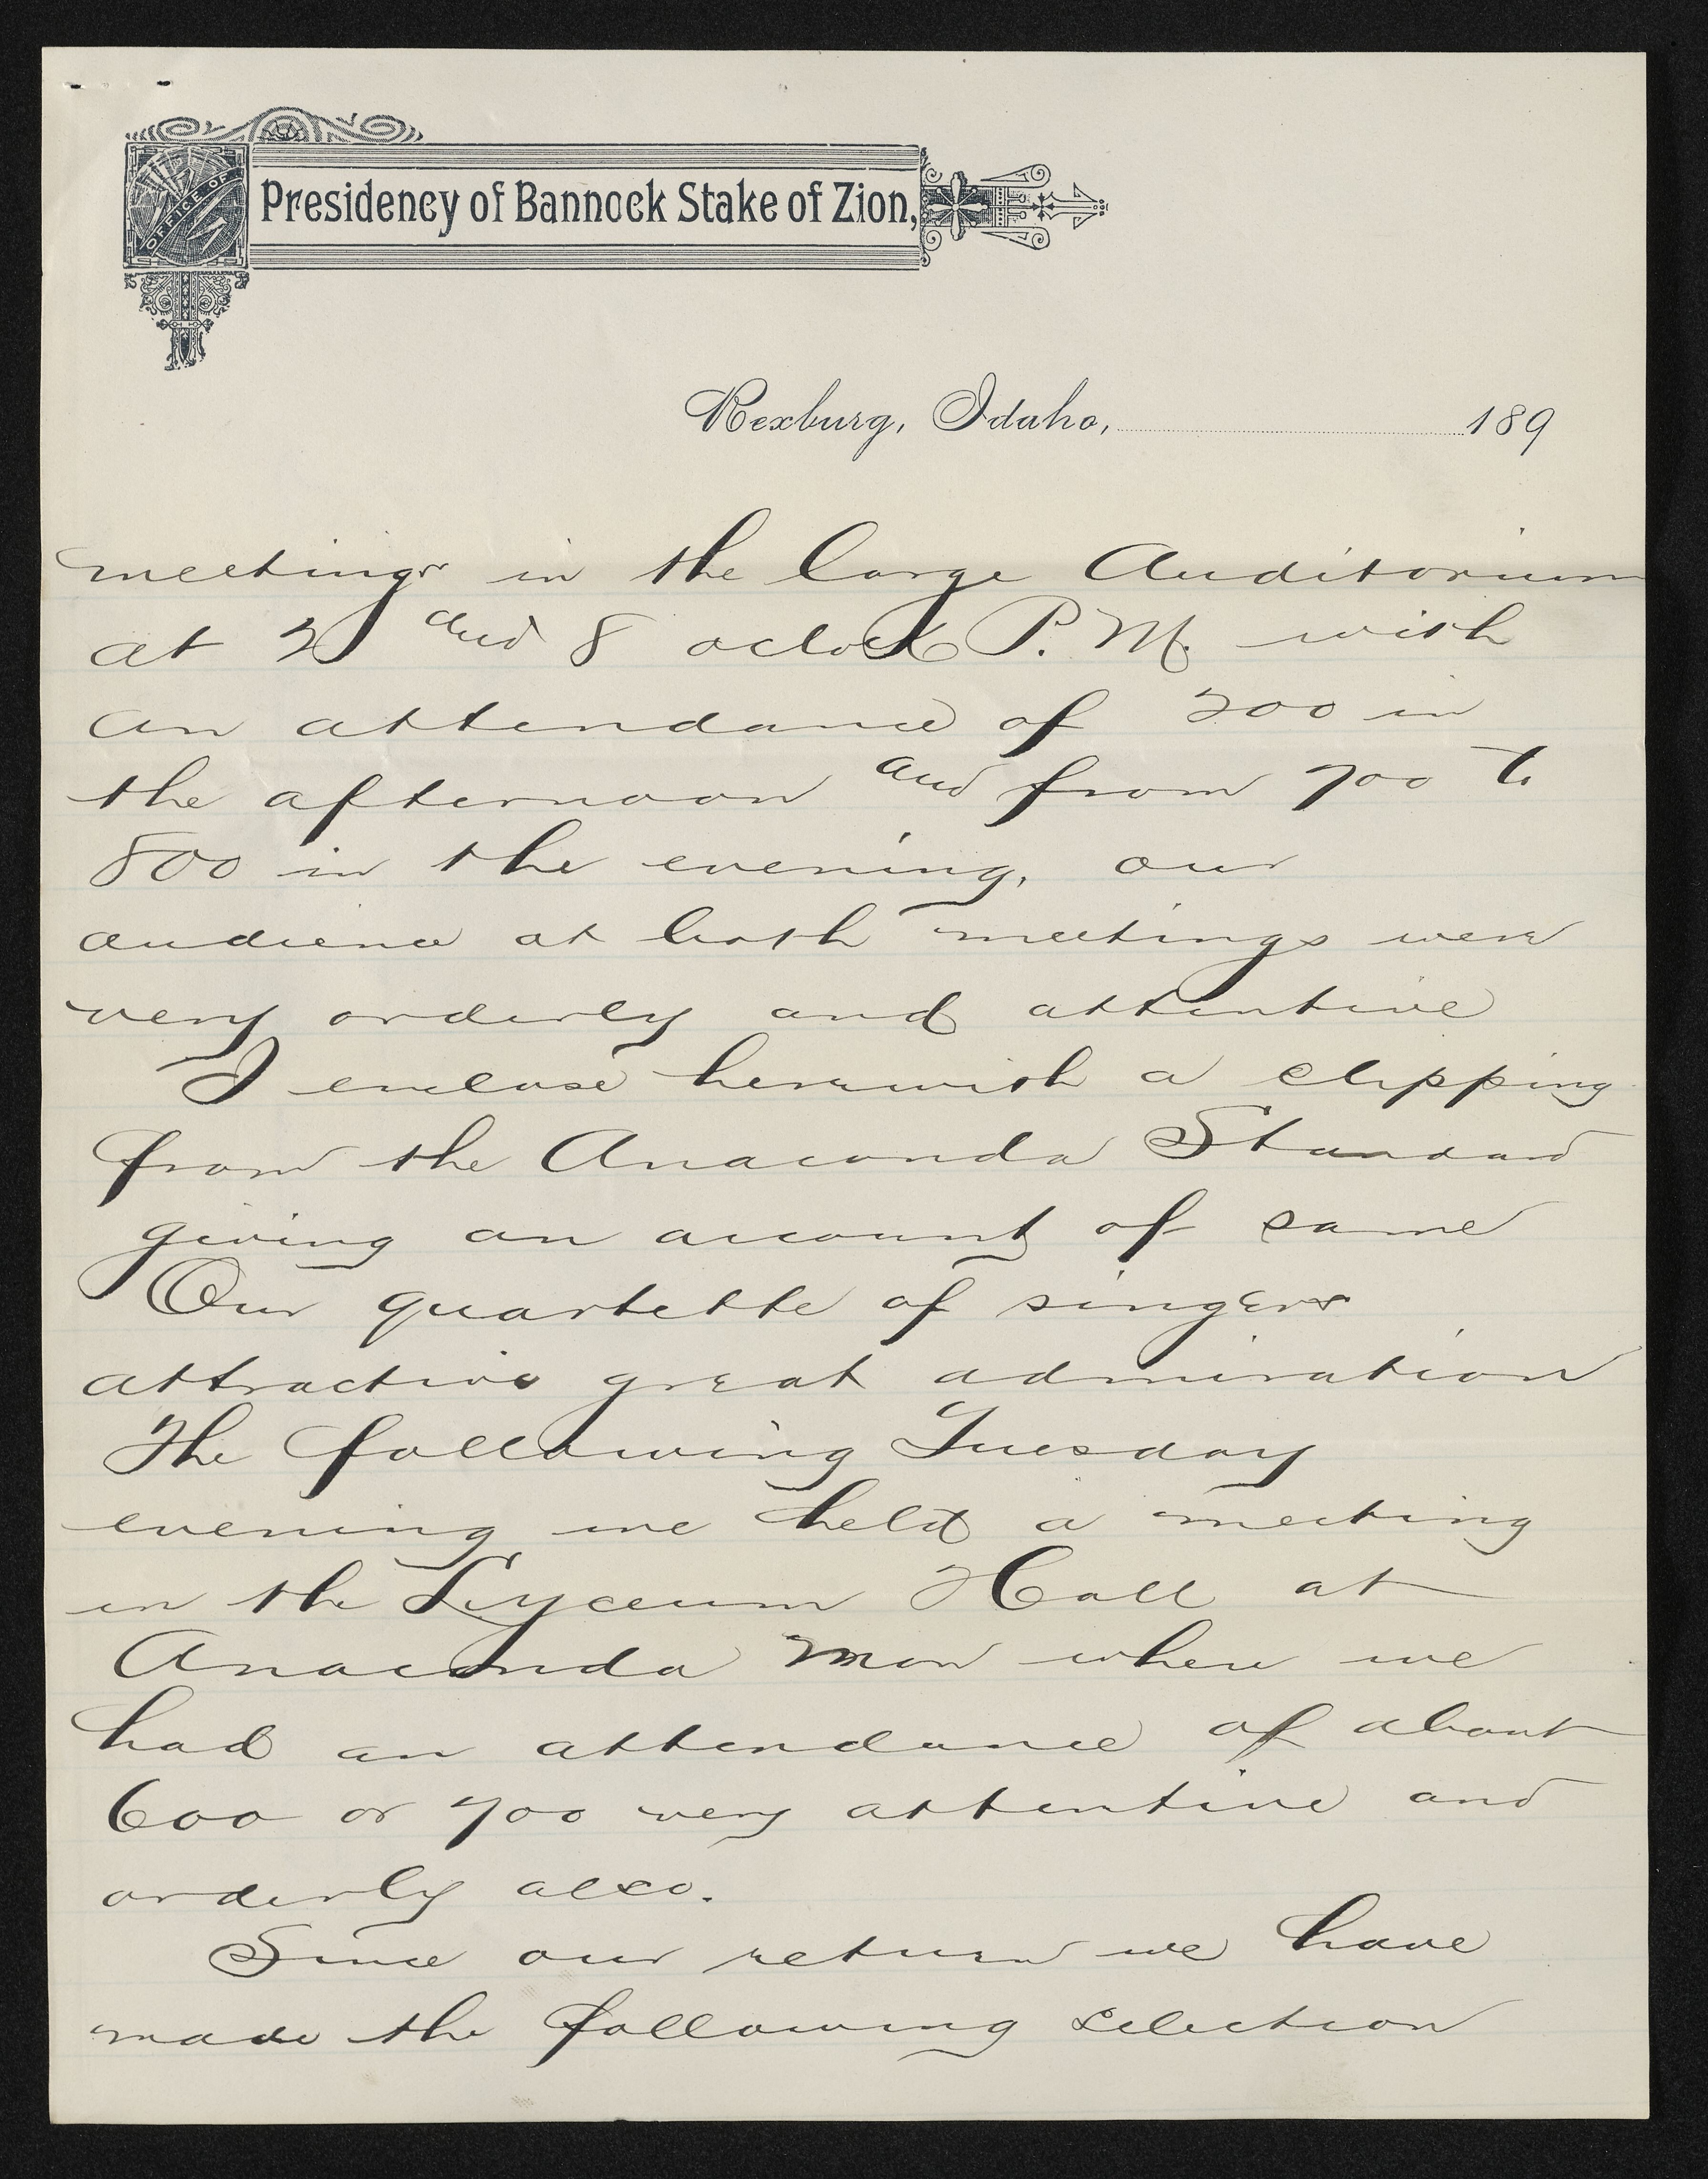 OFFICE OF
Presidency of Bannock Stake of Zion,
Rexburg, Idaho, 189
meetings in the large Auditorium
at 2 and 8 oclock P. M. with
an attendance of 200 in
the afternoon and from 700 to
800 in the evening, our
audience at both meetings were
very orderly and attentive
I enclose herewith a clipping
from the Anaconda Standard
giving an account of same
Our quartette of singers
attractive great admiration
The following Tuesday
evening we held a meeting
in the Lyceum Hall at
Anaconda Mon where we
had an attendance of about
600 or 700 very attentive and
orderly also.
Since our return we have
made the following selection